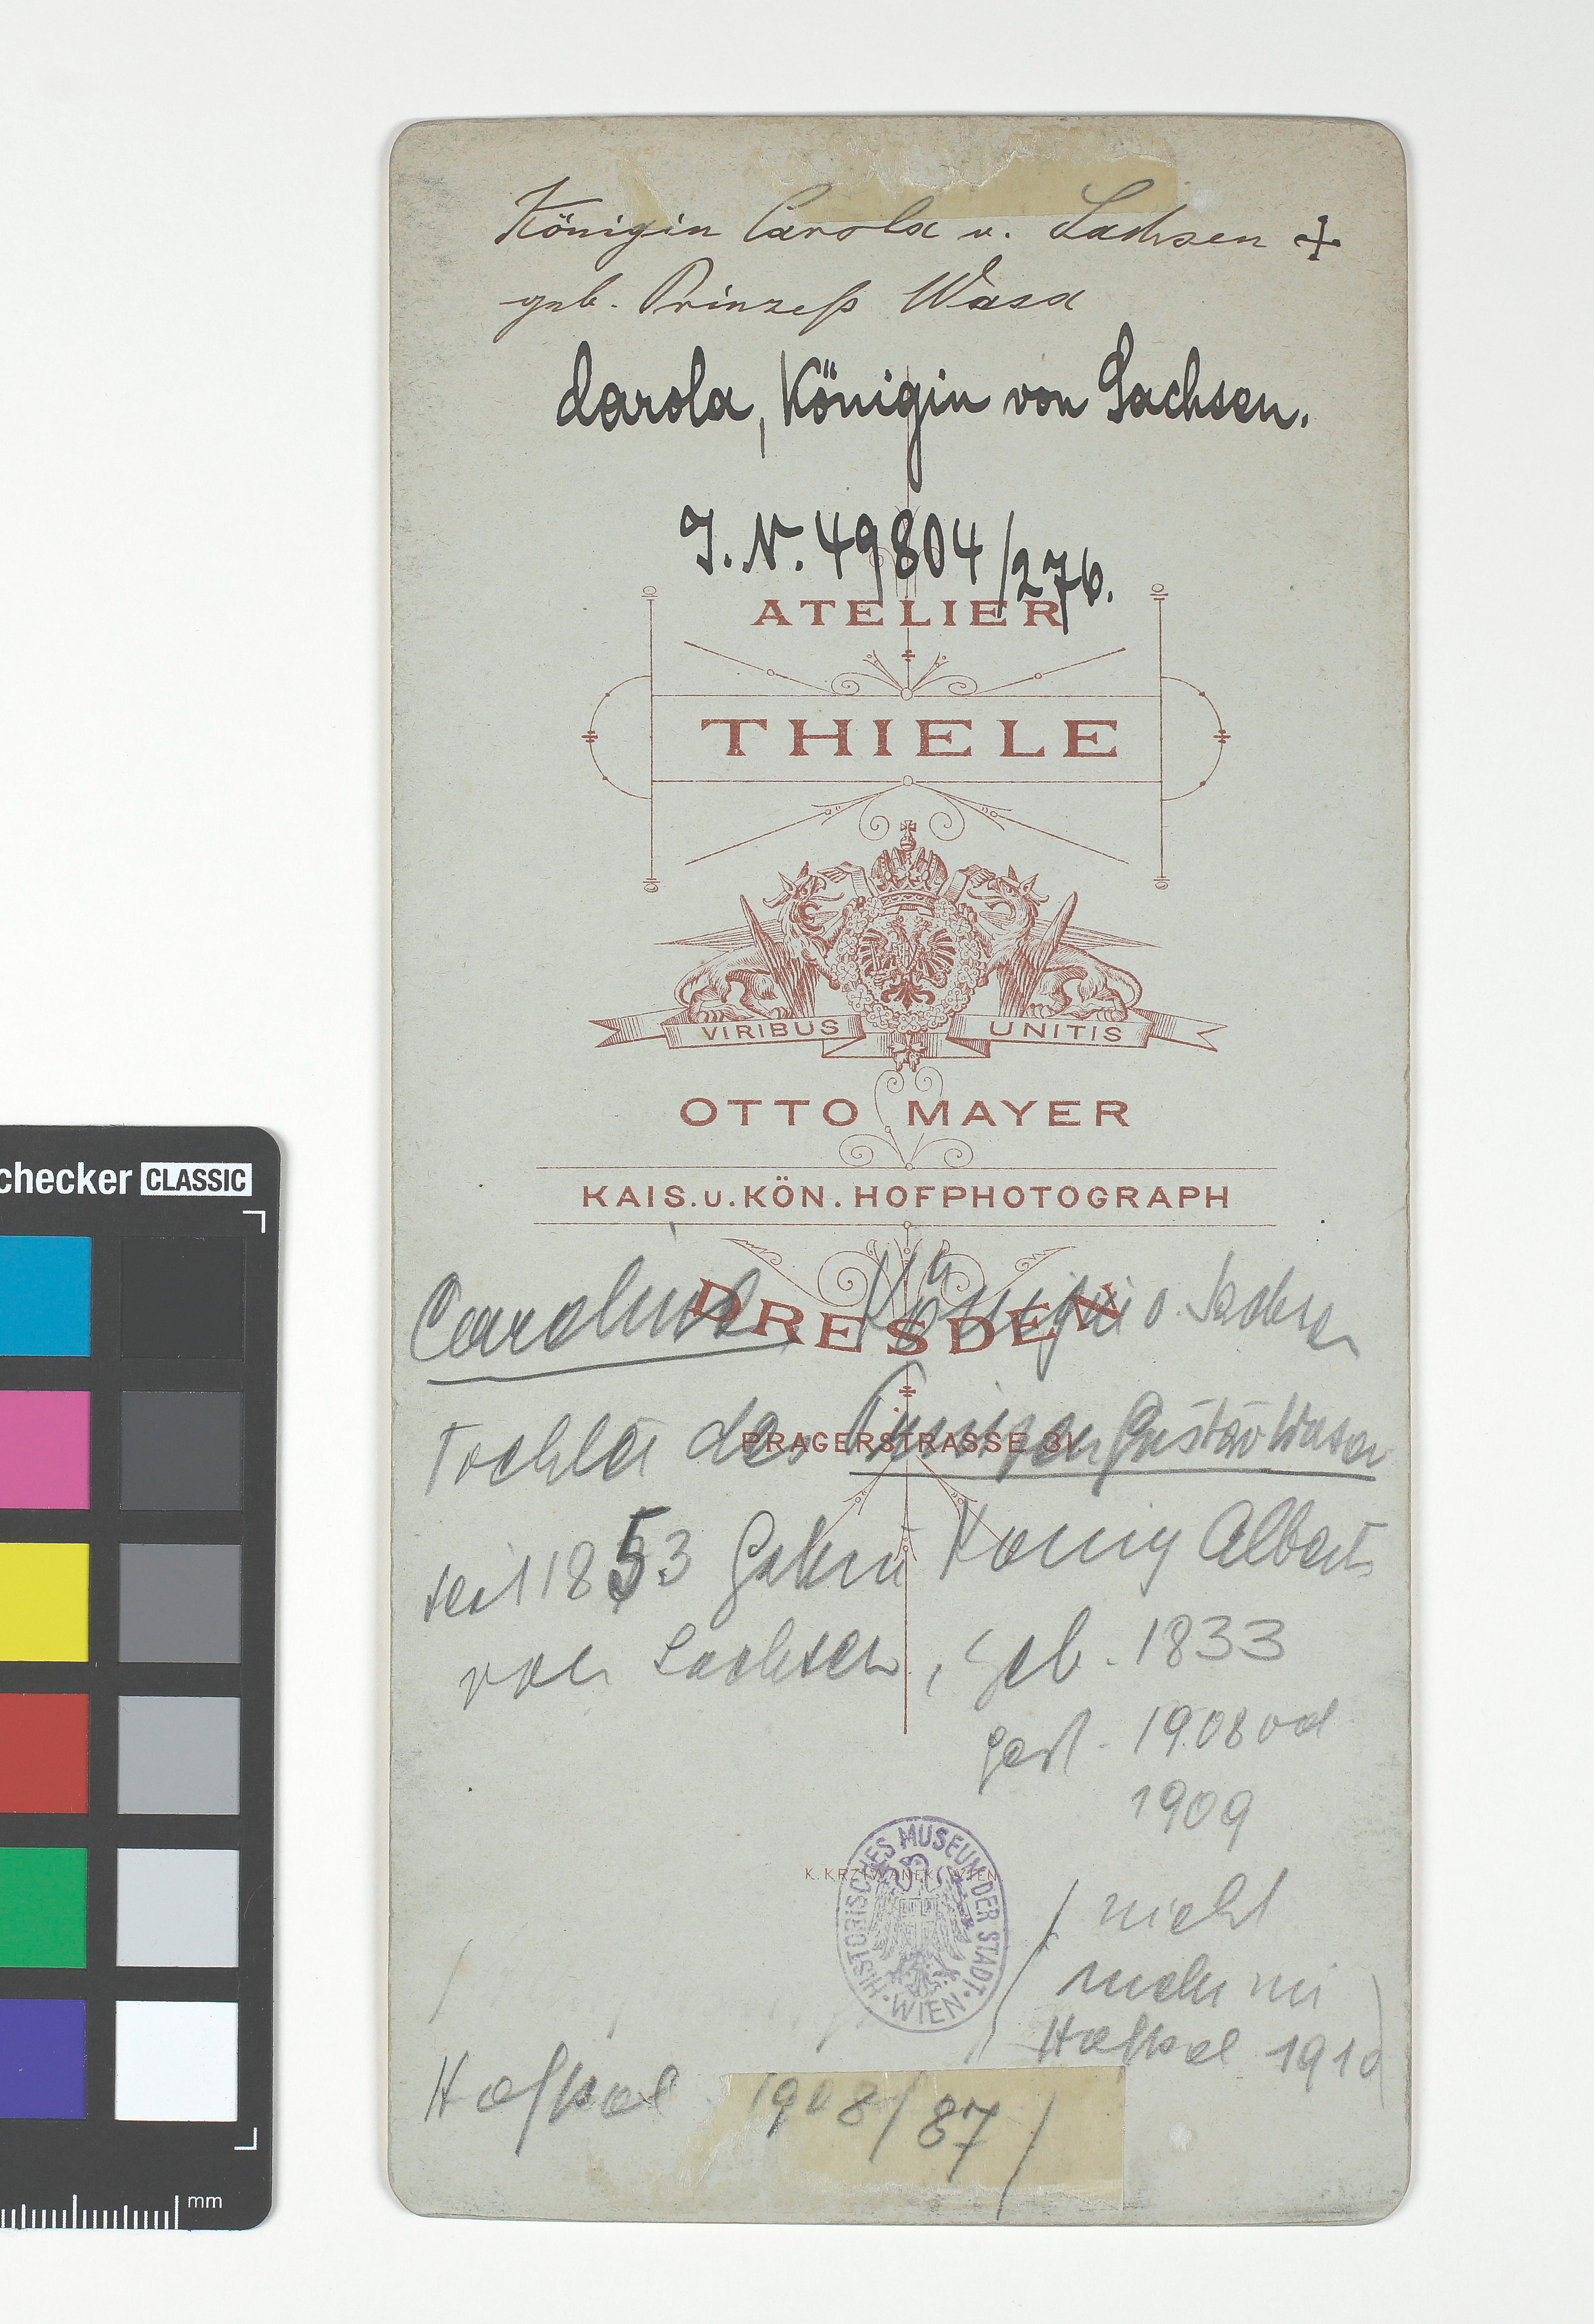 Königin Carola v. Sachsen +
geb. Prinzeß Wasa
Carola, Königin von Sachsen.
I. N. 49804/276.
ATELIER
THIELE
VIRIBUS UNITIS
OTTO MAYER
KAIS. u. KÖN. HOFPHOTOGRAPH
DRESDEN
Caroline, Königin v. Sachsen
Tochter des Prinzen Gustav Wasa
PRAGERSTRASSE 31
seit 1853 König Albert
von Sachsen, geb. 1833
gest. 1908 od
1909
K. KRZIWANEK, WIEN
HISTORISCHES MUSEUM DER STADT · WIEN ·
nicht
mehr im
Hofkal 1910
Hofkal 1908/87
checker CLASSIC
mm